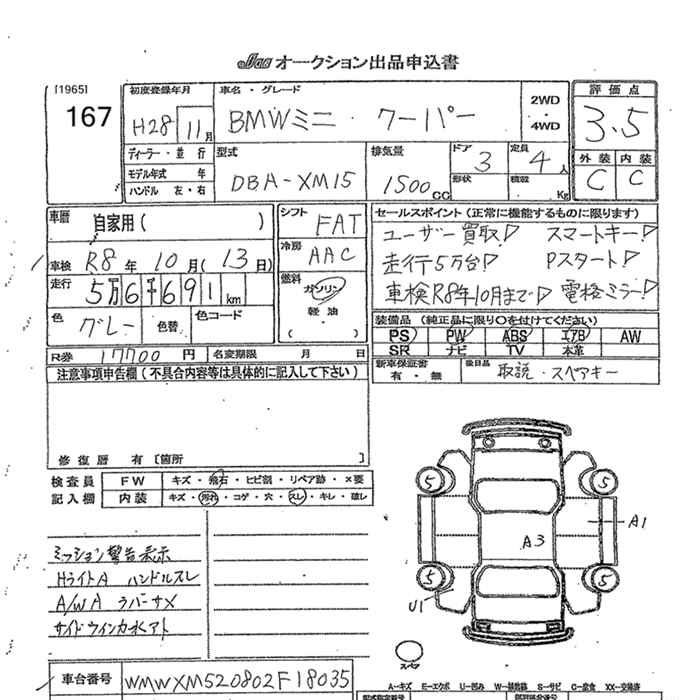 JAA オークション出品申込書
[1965]
167
初度登録年月
H28 11月
車名・グレード
BMWミニ クーパー
2WD
・
4WD
評価点
3.5
外装 内装
C C
ディーラー・並行
モデル年式 年
ハンドル 左・右
型式
DBA-XM15
排気量
1500 CC
ドア 3
形状
定員 4人
積載 Kg
車歴 自家用( )
車検 R8年10月(13日)
走行 5万6千691km
色 グレー 色替 色コード
シフト FAT
冷房 AAC
燃料 ガソリン
軽油
( )
セールスポイント(正常に機能するものに限ります)
ユーザー買取! スマートキー!
走行5万台! Pスタート!
車検R8年10月まで! 電格ミラー!
装備品(純正品に限り○を付けてください)
PS PW ABS エアB AW
SR ナビ TV 本革
R券 17700円 名変期限 月 日
新車保証書 有・無
後日品 取説・スペアキー
注意事項申告欄(不具合内容等は具体的に記入して下さい)
修復歴 有[箇所 ]
検査員 記入欄
FW キズ・飛石・ヒビ割・リペア跡・×要
内装 キズ・汚れ・コゲ・穴・スレ・キレ・破レ
ミッション警告表示
HライトA ハンドルスレ
A/WA ラバーサメ
サイドウインカー水アト
5 5
A1
A3
5 5
U1
スペア
車台番号 WMWXM520802F18035
A=キズ E=エクボ U=凹み W=補修跡 S=サビ C=腐食 XX=交換済